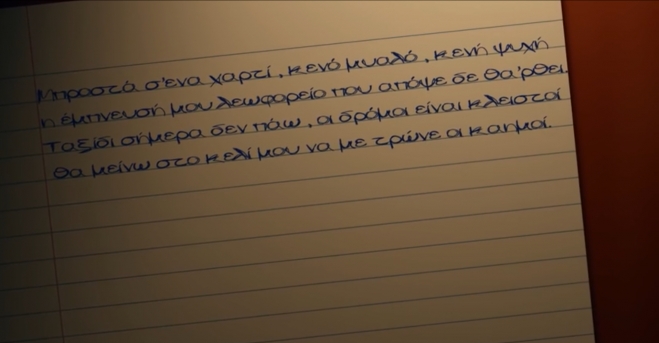 Μπροστά σ'ένα χαρτί, κενό μυαλό, κενή ψυχή
η έμπνευσή μου λεωφορείο που απόψε δε θα'ρθει.
Ταξίδι σήμερα δεν πάω, οι δρόμοι είναι κλειστοί
Θα μείνω στο κελί μου να με τρώνε οι καημοί.